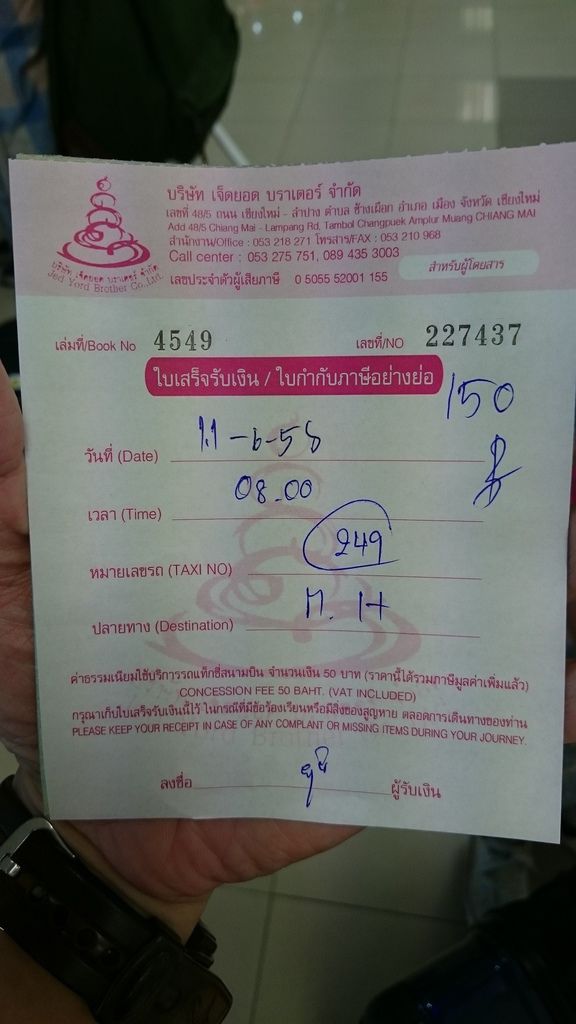 บริษัท เจ็ดยอด บราเดอร์ จำกัด
เลขที่ 48/5 ถนน เชียงใหม่ - ลำปาง ตำบล ช้างเผือก อำเภอ เมือง จังหวัด เชียงใหม่
Add 48/5 Chiang Mai - Lampang Rd, Tambol Changpuek Amplur Muang CHIANG MAI
สำนักงาน/Office : 053 218 271 โทรสาร/FAX : 053 210 968
Call center : 053 275 751, 089 435 3003
สำหรับผู้โดยสาร
เลขประจำตัวผู้เสียภาษี 0 5055 52001 155
บริษัท เจ็ดยอด บราเดอร์ จำกัด
Jed Yord Brother Co.,Ltd.
เล่มที่/Book No 4549 เลขที่/NO 227437
ใบเสร็จรับเงิน / ใบกำกับภาษีอย่างย่อ
150
วันที่ (Date) 11-6-58
เวลา (Time) 08.00
หมายเลขรถ (TAXI NO) 249
ปลายทาง (Destination) M. H
ค่าธรรมเนียมใช้บริการรถแท็กซี่สนามบิน จำนวนเงิน 50 บาท (ราคานี้ได้รวมภาษีมูลค่าเพิ่มแล้ว)
CONCESSION FEE 50 BAHT. (VAT INCLUDED)
กรุณาเก็บใบเสร็จรับเงินนี้ไว้ ในกรณีที่มีข้อร้องเรียนหรือมีสิ่งของสูญหาย ตลอดการเดินทางของท่าน
PLEASE KEEP YOUR RECEIPT IN CASE OF ANY COMPLANT OR MISSING ITEMS DURING YOUR JOURNEY.
ลงชื่อ ผู้รับเงิน